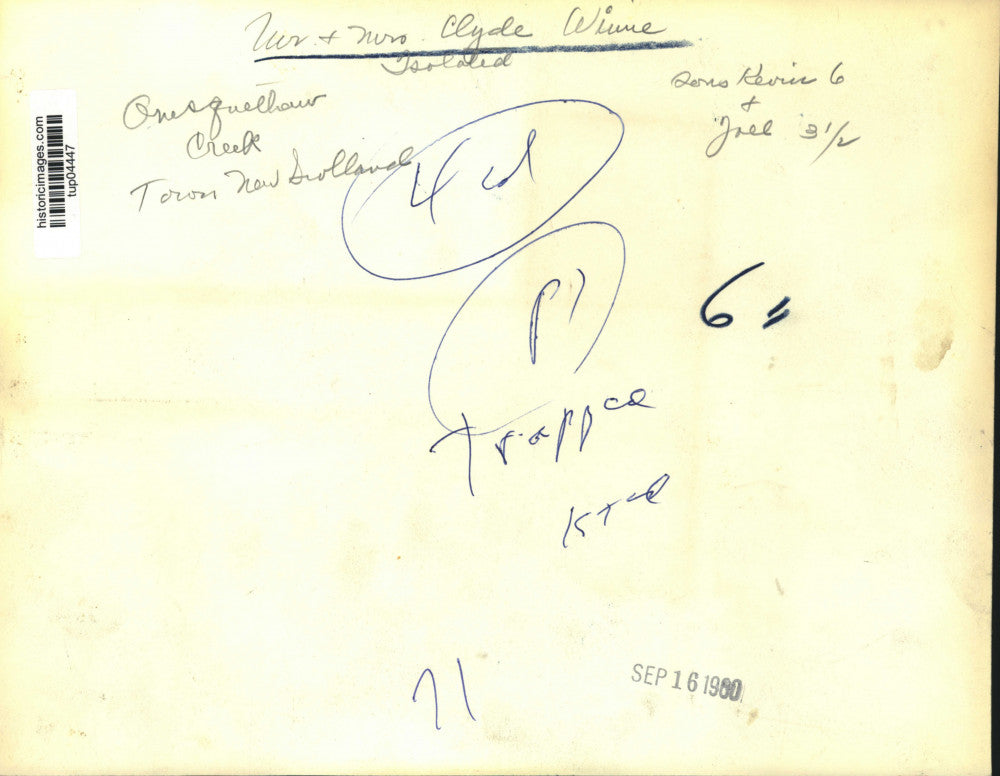 Mr. + Mrs. Clyde Winne
Isolated
sons Kevin 6
+
Joel 3 1/2
Onesquethaw
Creek
Town New Scotland
historicimages.com
tup04447
4 cd
p1
6"
Trapped
1st ed
71
SEP 16 1960